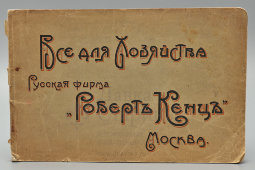 Все для Хозяйства
Русская фирма
„Робертъ Кенцъ“
Москва.